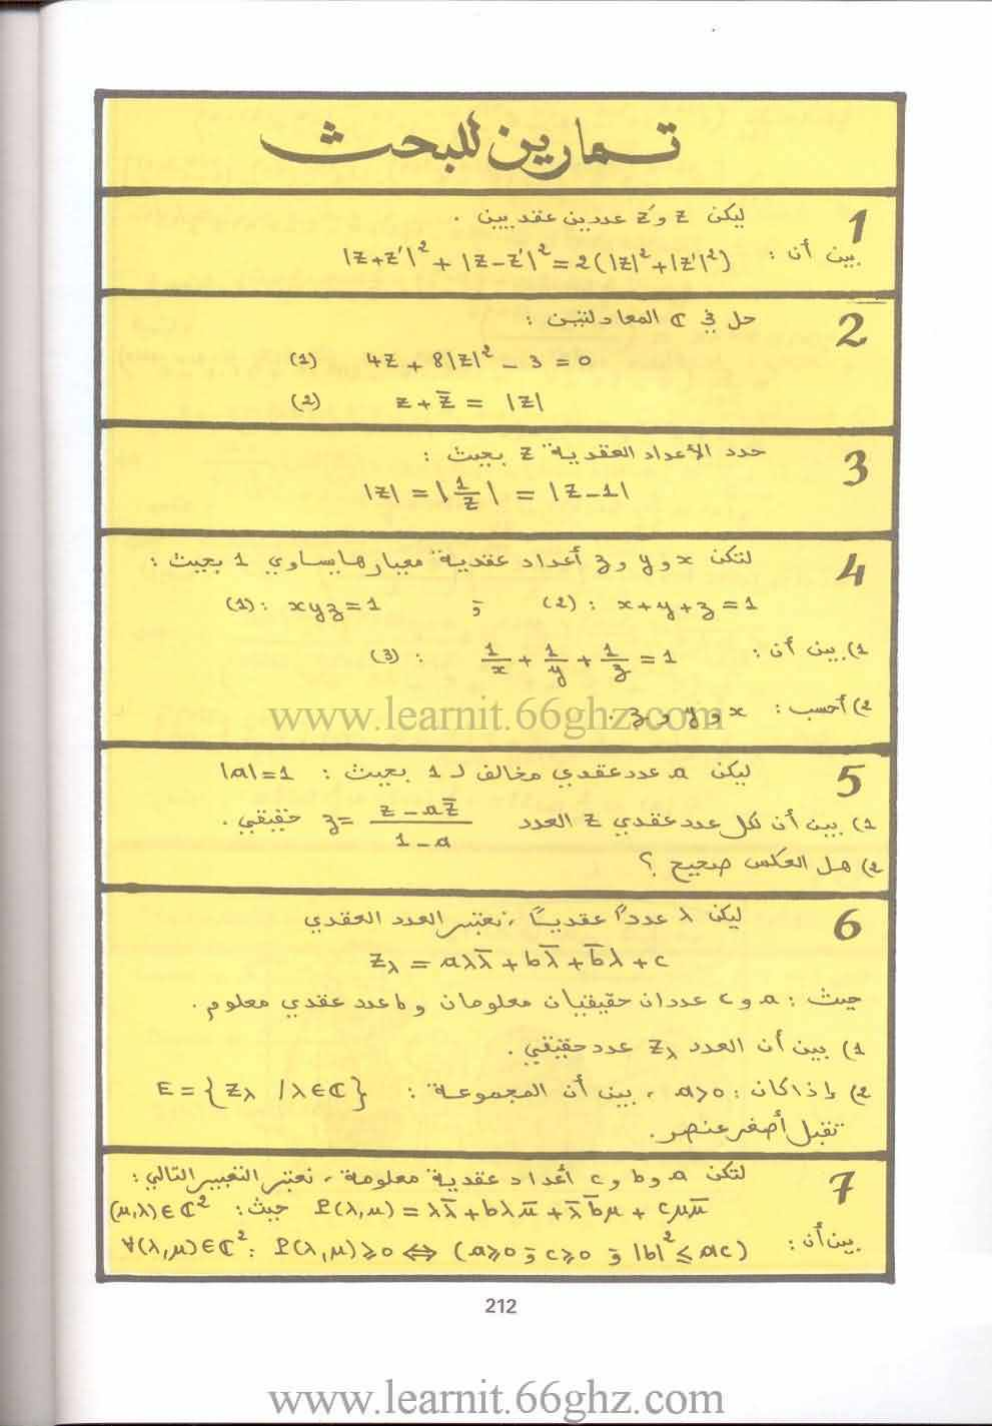 تمارين للبحث
1
ليكن z و z' عددين عقديين .
بين أن : |z+z'|² + |z-z'|² = 2(|z|²+|z'|²)
2
حل في ℂ المعادلتين :
(1) 4z + 8|z|² - 3 = 0
(2) z + z̄ = |z|
3
حدد الأعداد العقدية z بحيث :
|z| = |1/z| = |z-1|
4
لتكن x و y و z أعداد عقدية معيارها يساوي 1 بحيث :
(1) : xyz = 1 و (2) : x+y+z = 1
1) بين أن : 1/x + 1/y + 1/z = 1 : (3)
2) أحسب : x و y و z .
www.learnit.66ghz.com
5
ليكن a عدد عقدي مخالف لـ 1 بحيث : |a|=1
1) بين أن لكل عدد عقدي z العدد z = (z - a z̄)/(1 - a) حقيقي .
2) هل العكس صحيح ؟
6
ليكن λ عدداً عقدياً ، نعتبر العدد العقدي
Z_λ = aλλ̄ + bλ̄ + b̄λ + c
حيث : a و c عددان حقيقيان معلومان و b عدد عقدي معلوم .
1) بين أن العدد Z_λ عدد حقيقي .
2) إذا كان : a>0 ، بين أن المجموعة : E = {Z_λ / λ∈ℂ}
تقبل أصغر عنصر .
7
لتكن a و b و c أعداد عقدية معلومة ، نعتبر التعبير التالي :
P(λ,μ) = λλ̄ + bλμ̄ + λ̄b̄μ + cμμ̄ حيث : (μ,λ)∈ℂ²
بين أن : ∀(λ,μ)∈ℂ² : P(λ,μ)≥0 ⇔ (a≥0 و c≥0 و |b|² ≤ ac)
212
www.learnit.66ghz.com